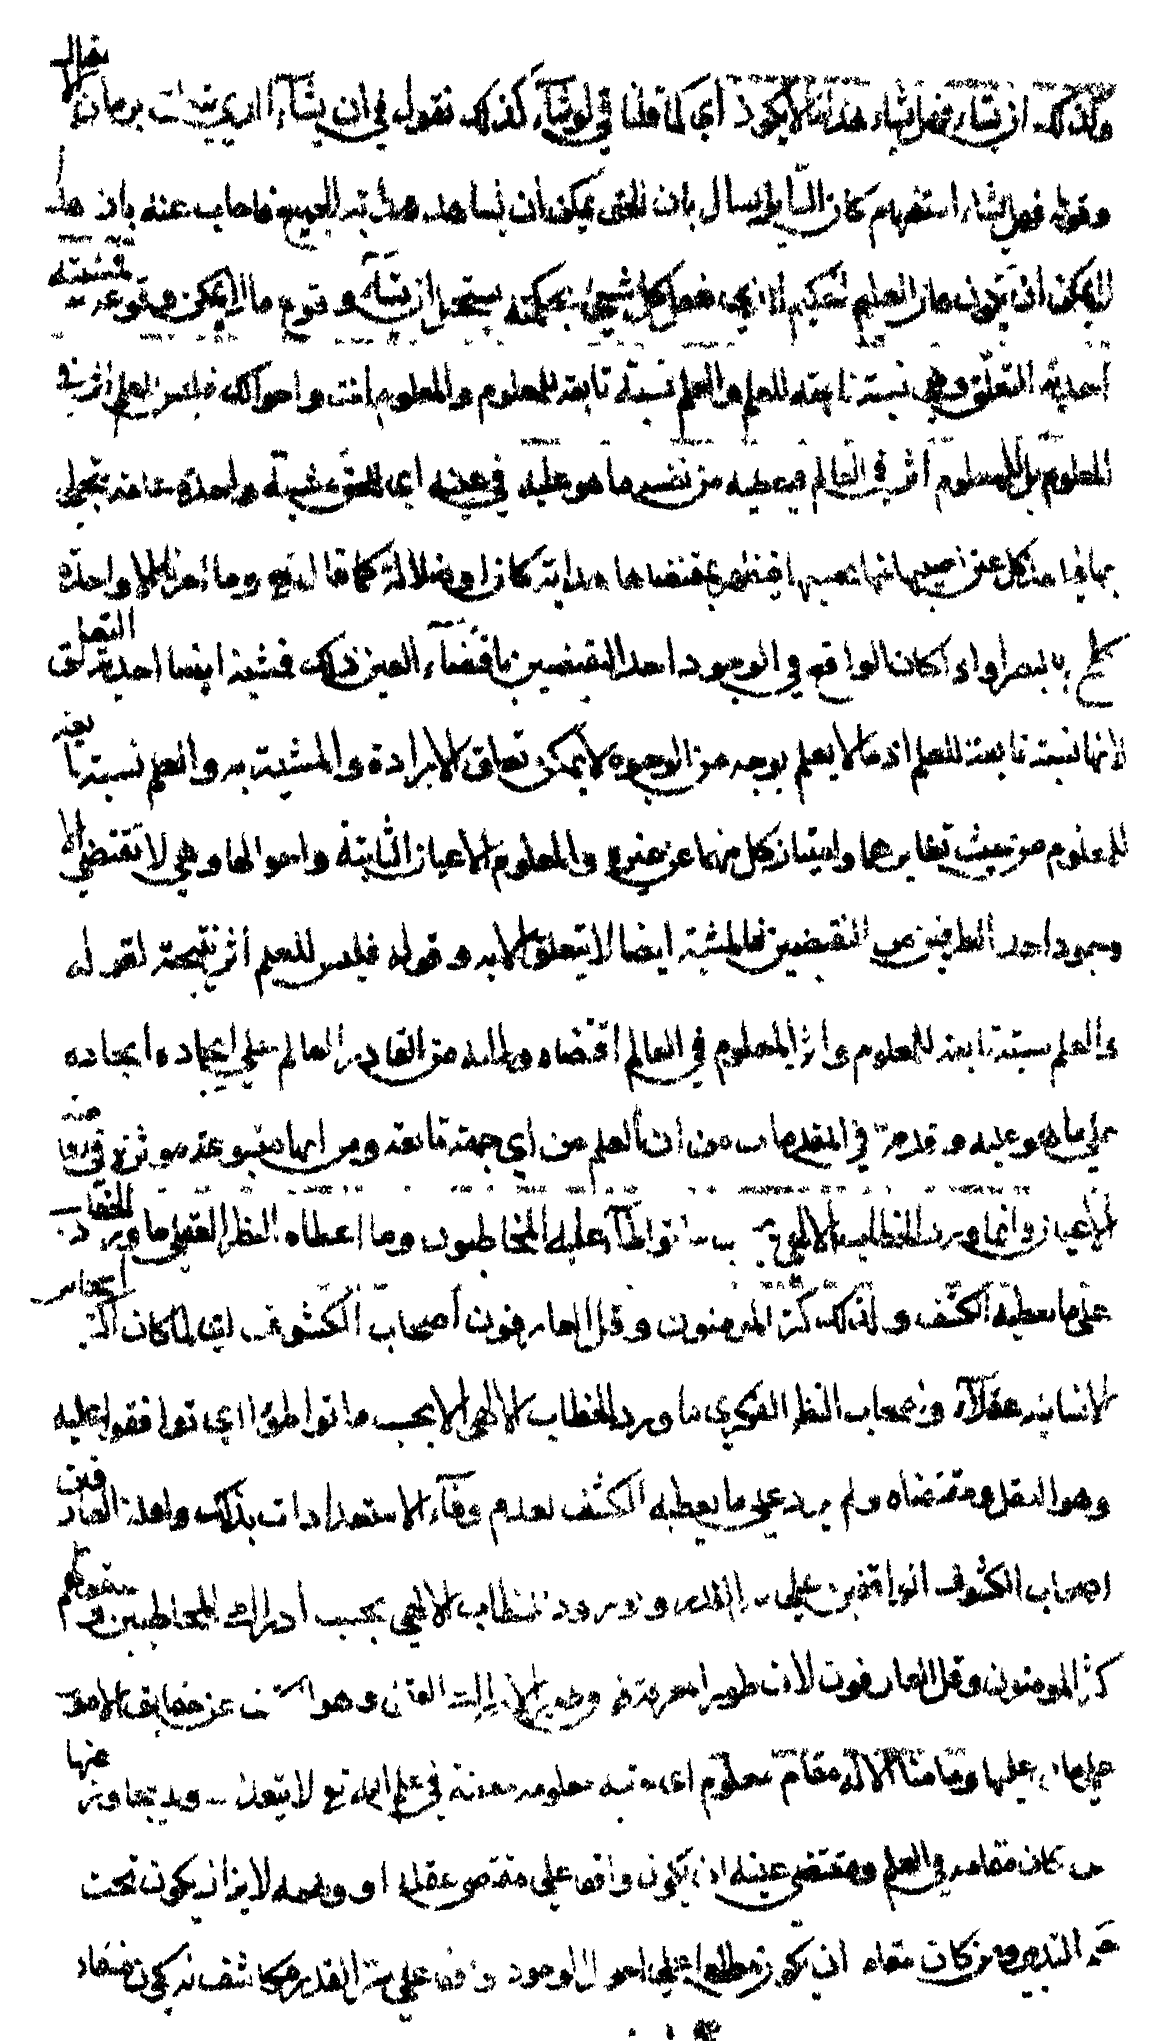 وكذلك ان يشاء فهل يشاء هذا ما لا يكون أي كما قلنا في لو يشاء كذلك نقول في ان يشاء برمان يقال لا
وقوله فهل يشاء استفهام كان السايل يسال بان الحق يمكن أن يشا هد هداية الجميع فاجاب عنه بان هذا
لا يمكن ان يكون فان العليم الحكيم الذي يفعل كل شيئ بحكمته يستحيل ان يشاء وقوع ما لا يمكن وقوعه فمشيته
احدية التعلق وهي نسبة تابعة للعلم والعلم نسبة تابعة للمعلوم والمعلوم أنت واحوالك فليس للعلم اثر في
المعلوم بل للمعلوم أثر في العالم فيعطيه من نفسه ما هو عليه في عينه اى للحق مشية واحدة عامة يتجلى
بها فياخذ كل عين نصيبها منها فيظهر بمقتضاها هداية كان او ضلالة كما قال تع وما أمرنا الا واحدة
كلمح بالبصر واذا كان الواقع في الوجود احد النقيضين باقتضاء العين ذلك فمشيته ايضا احدية التعلق
لانها نسبة تابعة للعلم اذ ما لا يعلم بوجه من الوجوه لا يمكن تعلق الارادة والمشية به والعلم نسبة تابعة
للمعلوم من حيث تغايرهما وامتياز كل منهما عن غيره والمعلوم الاعيان الثابتة واحوالها وهي لا تقتضي الا
وجود احد الطرفين من النقيضين فالمشية ايضا لا يتعلق الا به وقوله فليس للعلم أثر نتيجة لقوله
والعلم نسبة تابعة للمعلوم وأثر المعلوم في العالم اقتضاه وطلبه من القادر العالم على ايجاده ايجاده
على ما هو عليه وقد مر في المقدمات من ان العلم من اي جهة تابعة ومن ايها متبوعة موثرة في
الاعيان وانما ورد الخطاب الالهي بحسب ما تواطأ عليه المخاطبون وما اعطاه النظر العقلي ما ورد الخطاب
على ما يعطيه الكشف ولذلك كثر المومنون وقل العارفون أصحاب الكشوف اى لما كان اكثر
الانسانية عقلاء وأصحاب النظر الفكري ما ورد الخطاب الالهي الا بحسب ما تواطؤا اى توافقوا عليه
وهو العقل ومقتضاه ولم يرد على ما يعطيه الكشف لعدم وفاء الاستعدادات بذلك ولعلة العارفين
اصحاب الكشوف الواقفين على سر القدر وورود الخطاب الالهي بحسب أدراك المخاطبين وعقولهم
كثر المومنون وقل العارفون لان طور المعرفة فوق طور الادراك العقلي وهو الكشف عن حقايق الامور
على ما هي عليها وما منا الا له مقام معلوم اى مرتبة معلومة معينة في علم الله تع لا يتعداه ولا يتجاوز عنها
من كان مقامه في العلم ومقتضى عينه ان يكون واقفا على مقتضى عقله او وهمه لا يزال يكون تحت
ومن كان مقامه ان يكون مطلعا على احوال الوجود واقفا على سر القدر مكاشفا يكون